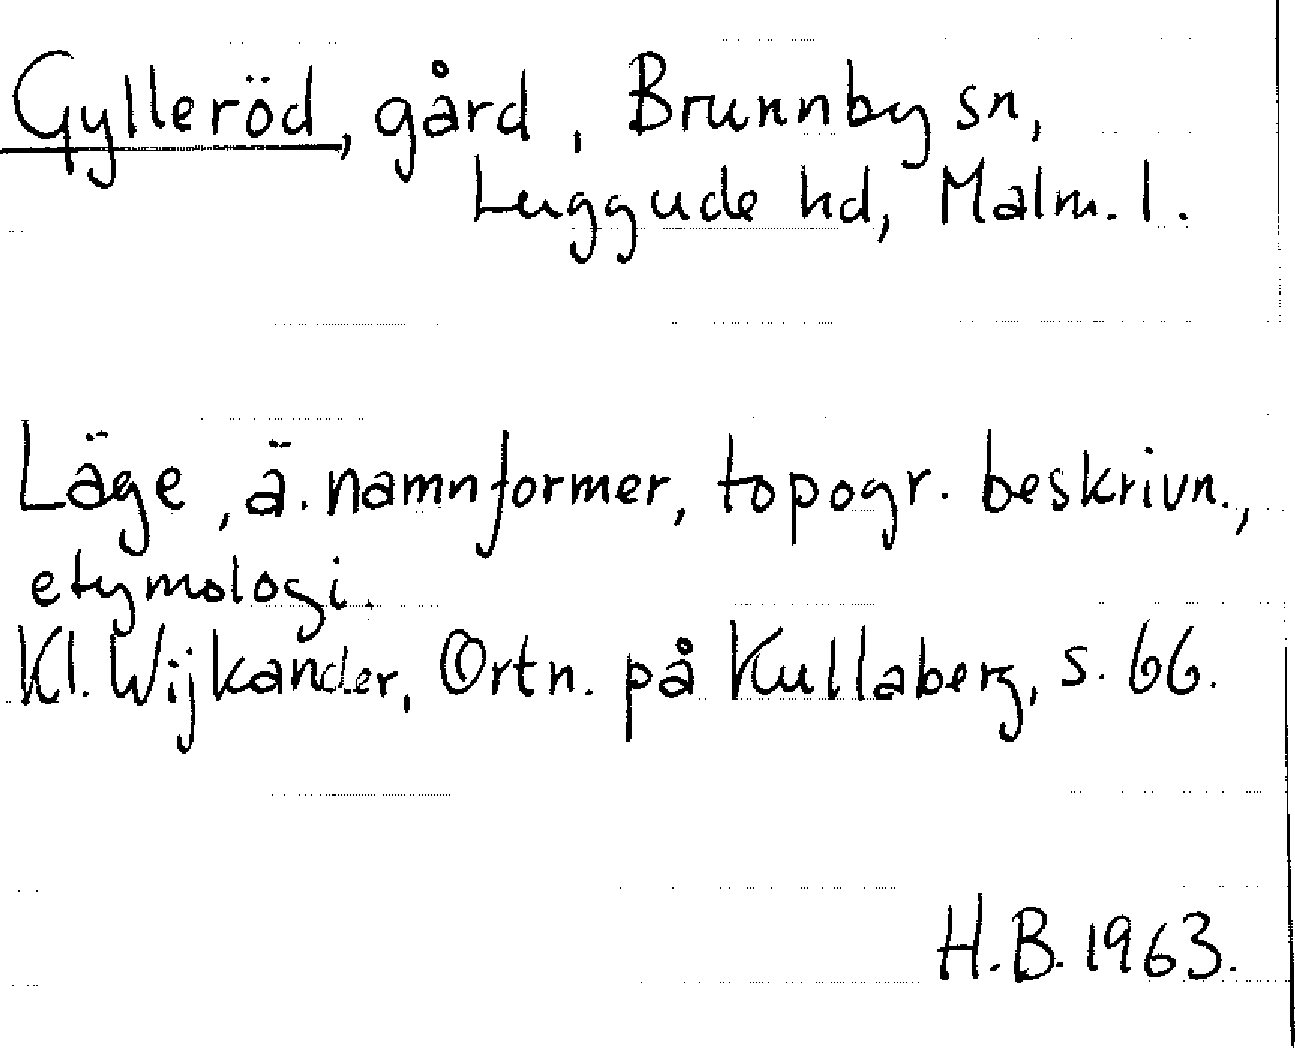 Gylleröd, gård, Brunnby sn,
Luggude hd, Malm. l.
Läge, ä. namnformer, topogr. beskrivn.,
etymologi.
Kl. Wijkander, Ortn. på Kullaberg, s. 66.
H.B. 1963.